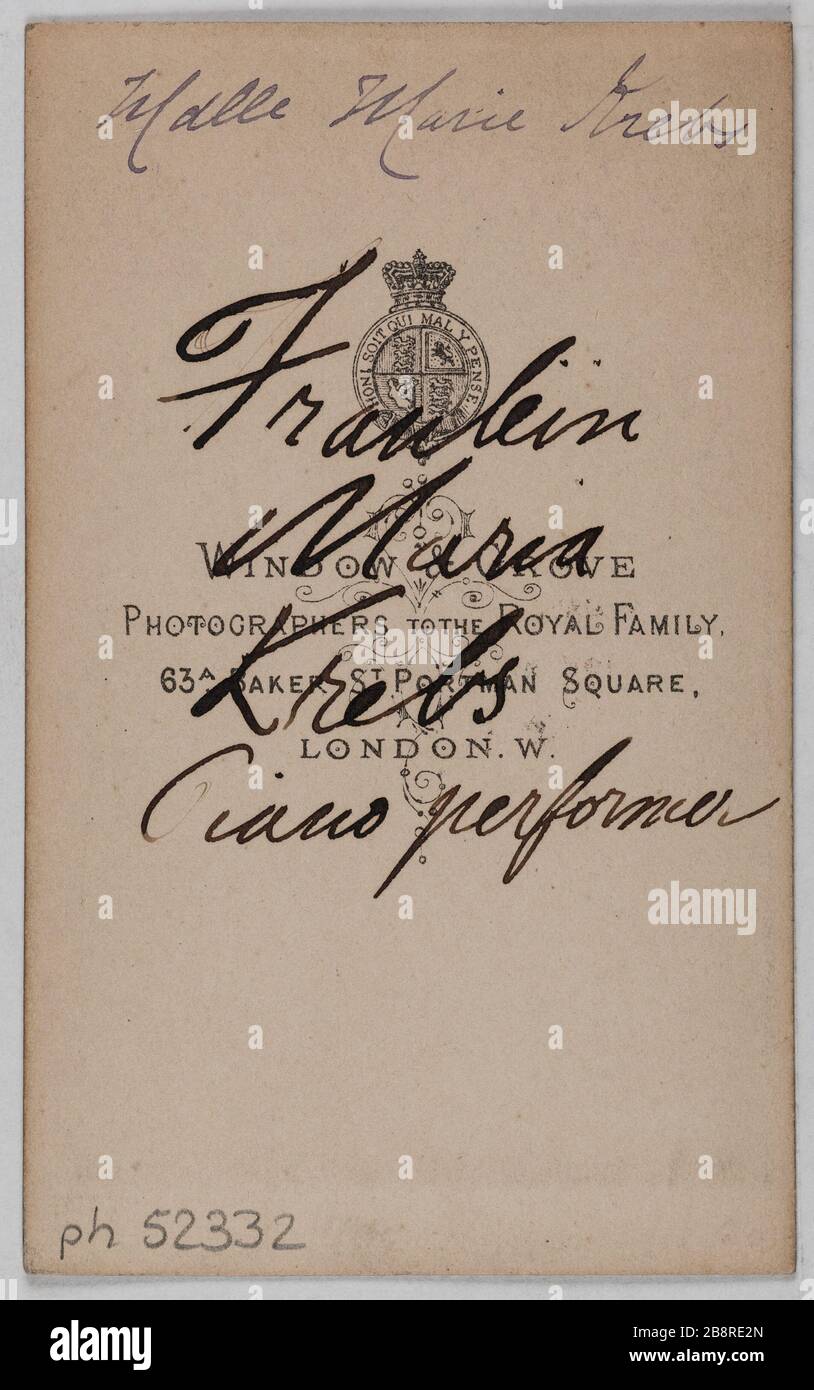 Mdlle Marie Krebs
HONI SOIT QUI MAL Y PENSE
Fraulein
Maria
WINDOW & GROVE
PHOTOGRAPHERS TO THE ROYAL FAMILY,
Krebs
63A BAKER ST. PORTMAN SQUARE,
LONDON. W.
Piano performer
alamy
ph 52332
alamy
Image ID: 2B8RE2N
www.alamy.com